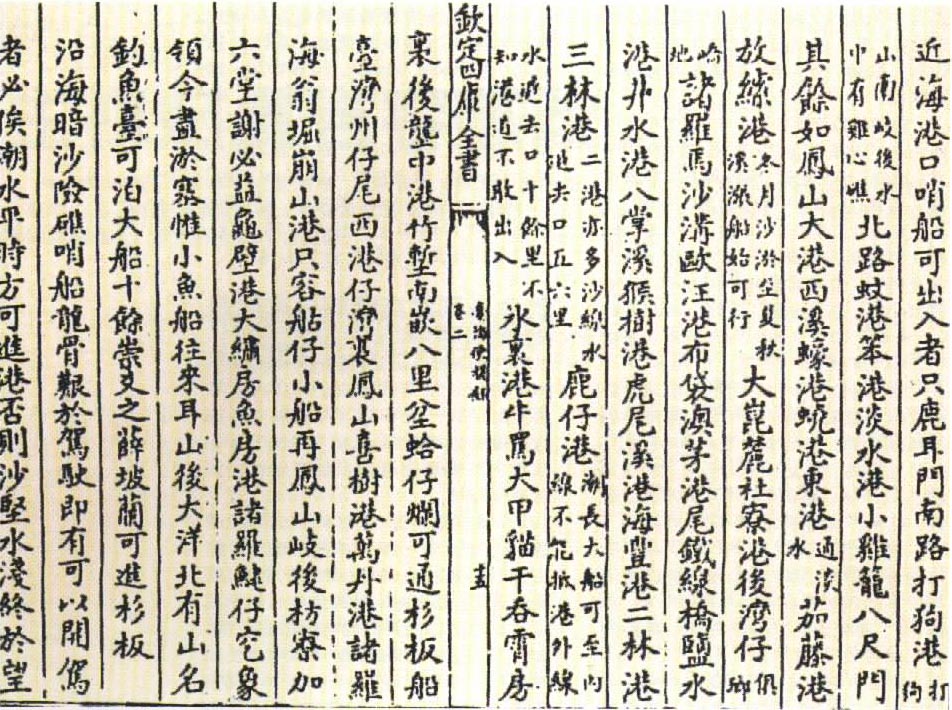 近海港口哨船可出入者只鹿耳門南路打狗港打狗
山南岐後水中有雞心礁北路蚊港笨港淡水港小雞籠八尺門
其餘如鳳山大港西溪蠔港蟯港東港通淡水茄藤港
放䌇港冬月沙淤至夏秋溪漲船始可行大崑麓社寮港後灣仔俱鄉
嶠地諸羅馬沙溝歐汪港布袋澳茅港尾鐵線橋鹽水
港井水港八掌溪猴樹港虎尾溪港海豐港二林港
三林港二港亦多沙線水退去口五六里鹿仔港潮長大船可至內線不能抵港外線
水退去口十餘里不知港道不敢出入水裏港牛罵大甲貓干吞霄房
欽定四庫全書
臺海使槎錄
卷二
十五
裏後龍中港竹塹南嵌八里坌蛤仔爛可通杉板船
臺灣州仔尾西港仔灣裏鳳山喜樹港萬丹港諸羅
海翁堀崩山港只容𦨭仔小船再鳳山岐後枋寮加
六堂謝必益龜壁港大繡房魚房港諸羅鯓仔穵象
領今盡淤塞惟小魚船往來耳山後大洋北有山名
釣魚臺可泊大船十餘崇爻之薛坡蘭可進杉板
沿海暗沙險礁哨船龍骨艱於駕駛即有可以開駕
者必俟潮水平時方可進港否則沙堅水淺終於望